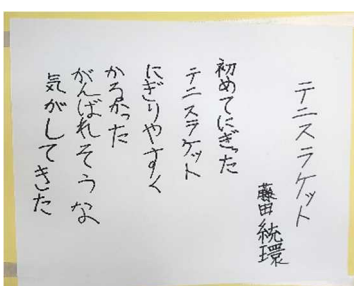 テニスラケット
藤田統環
初めてにぎった
テニスラケット
にぎりやすく
かるかった
がんばれそうな
気がしてきた